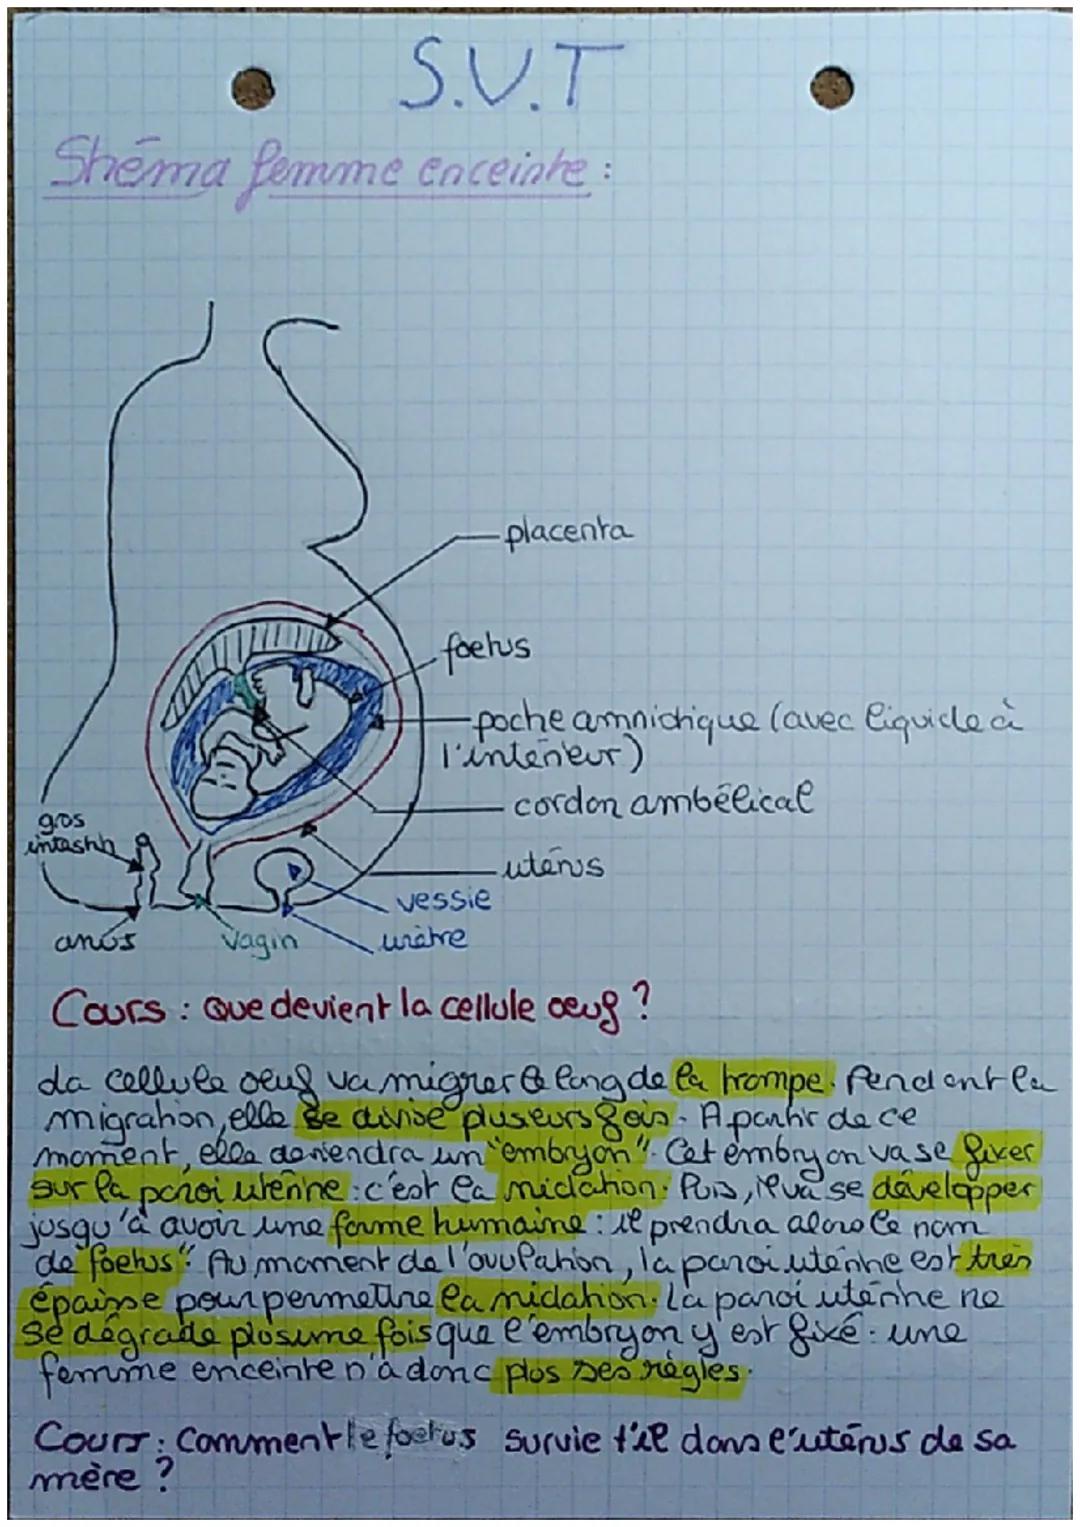 S.V.T
Shéma femme enceinte :
placenta
foetus
poche amniotique (avec liquide à
l'intérieur)
cordon ambélical
utérus
gros
intestin
vessie
anus
vagin
urètre
Cours : Que devient la cellule oeuf ?
La cellule oeuf va migrer le long de la trompe. Pendent la
migration, elle se divise pluseurs fois. A partir de ce
moment, elle deviendra un "embryon". Cet embryon va se fixer
sur la paroi utérine : c'est la nidation. Puis, il va se développer
jusqu'à avoir une forme humaine : il prendra alors le nom
de "foetus". Au moment de l'ovulation, la paroi utérine est très
épaisse pour permettre la nidation. La paroi utérine ne
se dégrade plus une fois que l'embryon y est fixé : une
femme enceinte n'a donc plus ses règles.
Cours : Comment le foetus survie t'il dans l'utérus de sa
mère ?